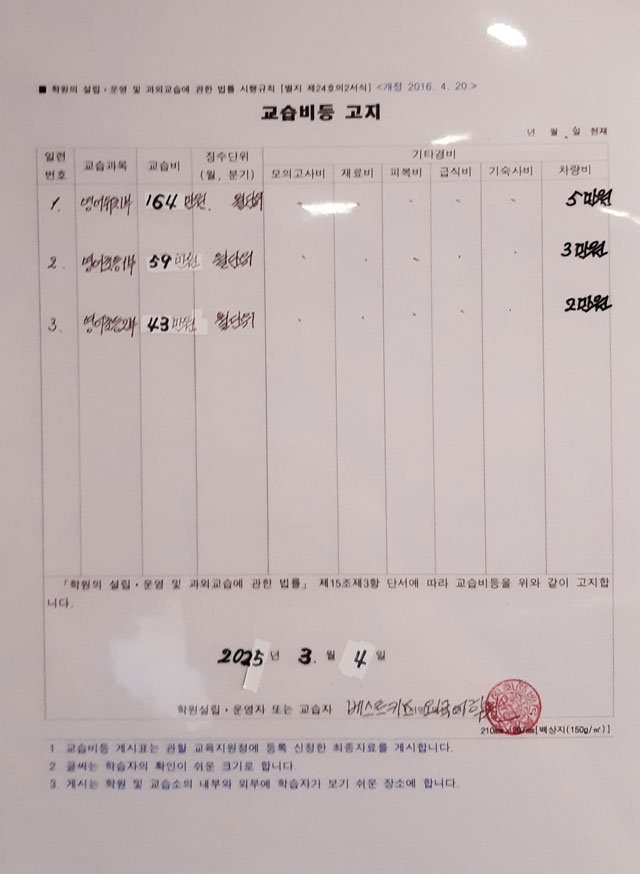 ■ 학원의 설립·운영 및 과외교습에 관한 법률 시행규칙 [별지 제24호의2서식] <개정 2016. 4. 20.>
교습비등 고지
년 월 일 현재
일련번호 교습과목 교습비 징수단위 (월, 분기) 기타경비
모의고사비 재료비 피복비 급식비 기숙사비 차량비
1. 영어유치부 164만원. 월단위 - - - - - 5만원
2. 영어초등1부 59만원 월단위 - - - - - 3만원
3. 영어초등2부 43만원 월단위 - - - - - 2만원
「학원의 설립·운영 및 과외교습에 관한 법률」 제15조제3항 단서에 따라 교습비등을 위와 같이 고지합
니다.
2025 년 3. 월 4 일
학원설립·운영자 또는 교습자 베스트키즈외국어학원
[백상지(150g/㎡)]
1. 교습비등 게시표는 관할 교육지원청에 등록 신청한 최종자료를 게시합니다.
2. 글씨는 학습자의 확인이 쉬운 크기로 합니다.
3. 게시는 학원 및 교습소의 내부와 외부에 학습자가 보기 쉬운 장소에 합니다.